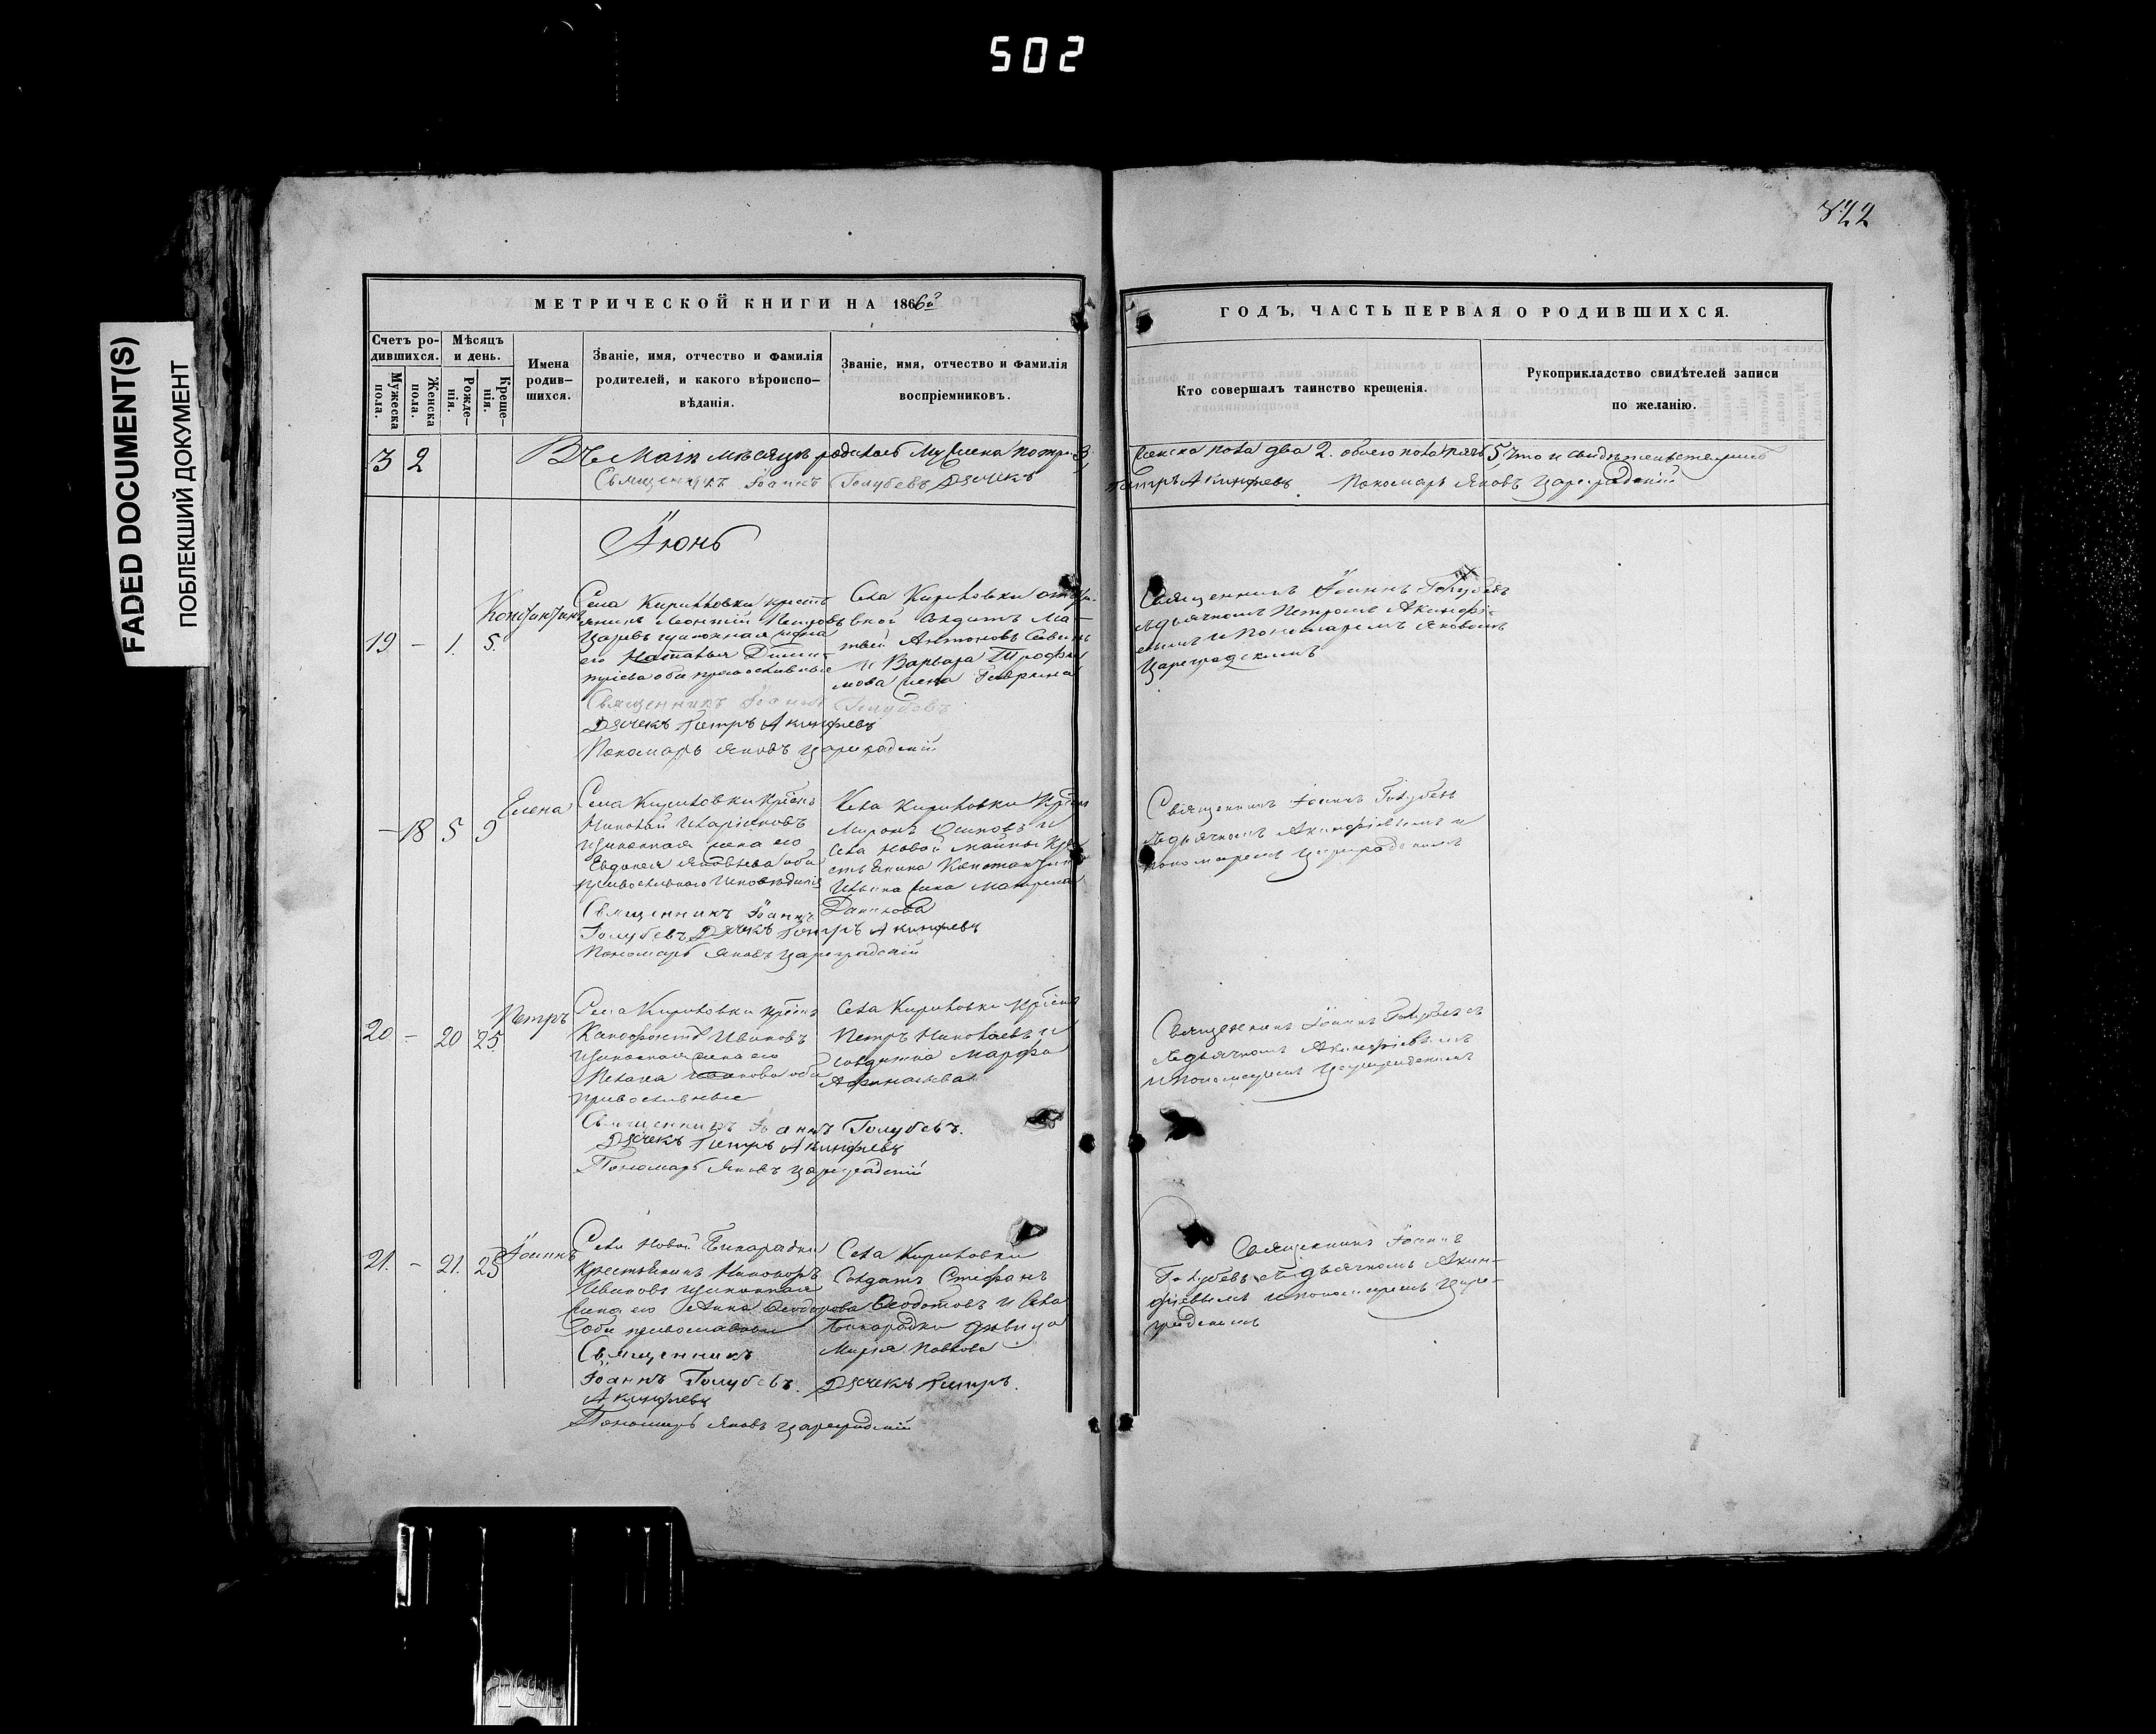 502
FADED DOCUMENT(S)
ПОБЛЕКШИЙ ДОКУМЕНТ
822
МЕТРИЧЕСКОЙ КНИГИ НА 1866й
ГОДЪ, ЧАСТЬ ПЕРВАЯ О РОДИВШИХСЯ.
Счетъ ро-
дившихся.
Мужеска
пола.
Женска
пола.
Мѣсяцъ
и день.
Рожде-
нія.
Креще-
нія.
Имена
родив-
шихся.
Званіе, имя, отчество и фамилія
родителей, и какого вѣроиспо-
вѣданія.
Званіе, имя, отчество и фамилія
воспріемниковъ.
Кто совершалъ таинство крещенія.
Рукоприкладство свидѣтелей записи
по желанію.
3 2
Въ Маіѣ мѣсяцѣ родилось Муж. пола три 3,
женска пола два 2. обоего пола пять 5, что и свидѣтельствуютъ
Священникъ Іоаннъ Голубевъ Дячекъ
Петръ Акинфіевъ Пономарь Яковъ Цареградскій
Іюнь
19 – 1. 5.
Константинъ
Села Кириловки крестъ
янинъ Леонтій Петровъ
законная жена
его Наталья Дими-
тріева оба православные
Села Кириловки
солдатъ Ма-
твей Антоновъ
и Варвара Трофи
мова
Священникомъ Іоаннъ Голубевъ
съ дьячкомъ Петромъ Акинфі-
евымъ и Пономаремъ Яковомъ
Цареградскимъ
Священникъ Іоаннъ Голубевъ
Дячекъ Петръ Акинфіевъ
Пономарь Яковъ Цареградскій
– 18 5 9
Елена
Села Кириловки Кресть
Николай
законная жена его
Евдокія Яковлева оба
православнаго исповѣданія
Села Кириловки Крест
Миронъ и
Села Новой Майны Кре
стьянина Константина
Ильина жена Матрена
Данилова
Священникомъ Іоаннъ Голубевъ
съ дьячкомъ Акинфіевымъ и
пономаремъ Цареградскимъ
Священникъ Іоаннъ
Голубевъ Дячекъ Петръ Акинфіевъ
Пономарь Яковъ Цареградскій
20 – 20 25.
Петръ
Села Кириловки крест
Ивановъ
законная жена его
оба
православные
Села Кириловки Крест
Петръ Николаевъ и
солдатка Марфа
Афанасьева
Священникомъ Іоаннъ Голубевъ
съ дьячкомъ Акинфіевымъ
и пономаремъ Цареградскимъ
Священникъ Іоаннъ Голубевъ.
Дячекъ Петръ Акинфіевъ
Пономарь Яковъ Цареградскій
21. – 21. 25
Іоаннъ
Села Новой Бинарадки
Крестьянинъ Никоноръ
Ивановъ законная
жена его Анна Ѳеодорова
оба православные
Села Кириловки
Солдатъ Стефанъ
Ѳеодотовъ и Села
Бинарадки дѣвица
Марія Павлова
Священникомъ Іоаннъ
Голубевъ съ дьячкомъ Акин-
фіевымъ и пономаремъ Царе-
градскимъ
Священникъ
Іоаннъ Голубевъ. Дячекъ Петръ.
Акинфіевъ
Пономарь Яковъ Цареградскій